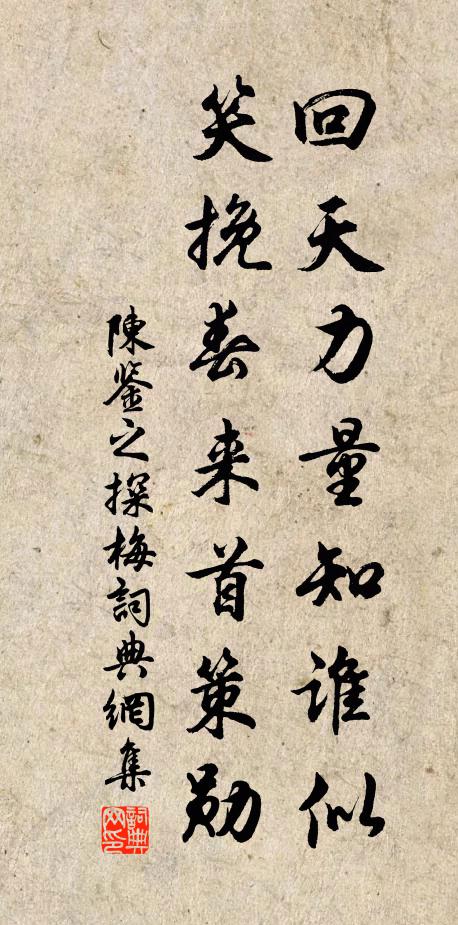 回天力量知谁似
笑挽春来首策勋
陳鉴之探梅詞典網集
詞典网印